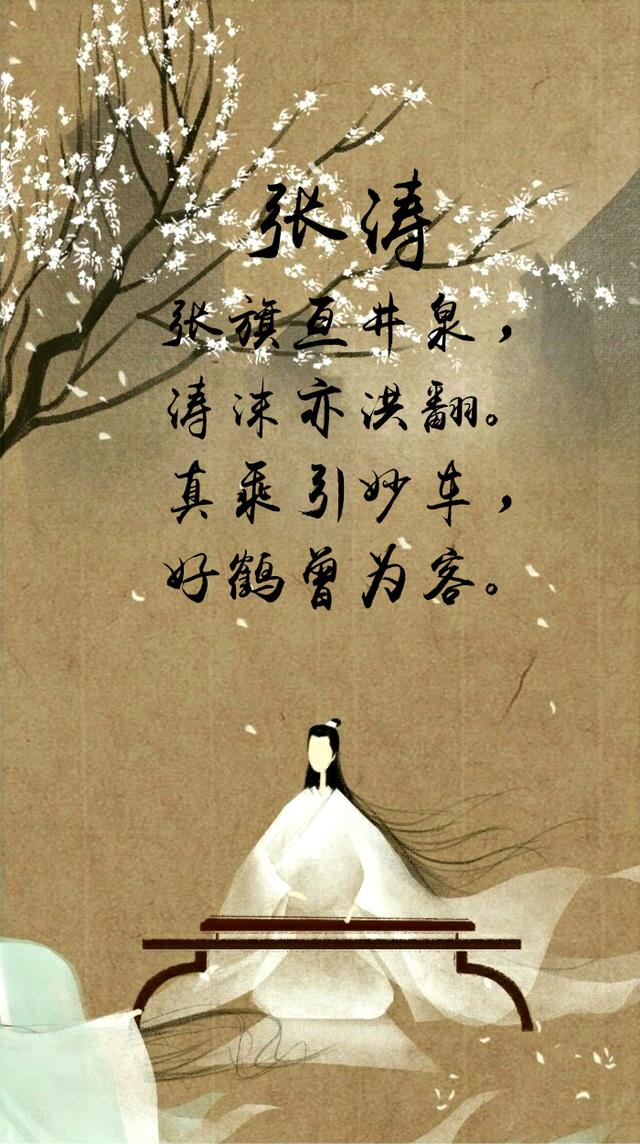 张涛
张旗亘井泉，
涛沫亦洪翻。
真乘引妙车，
好鹤曾为客。